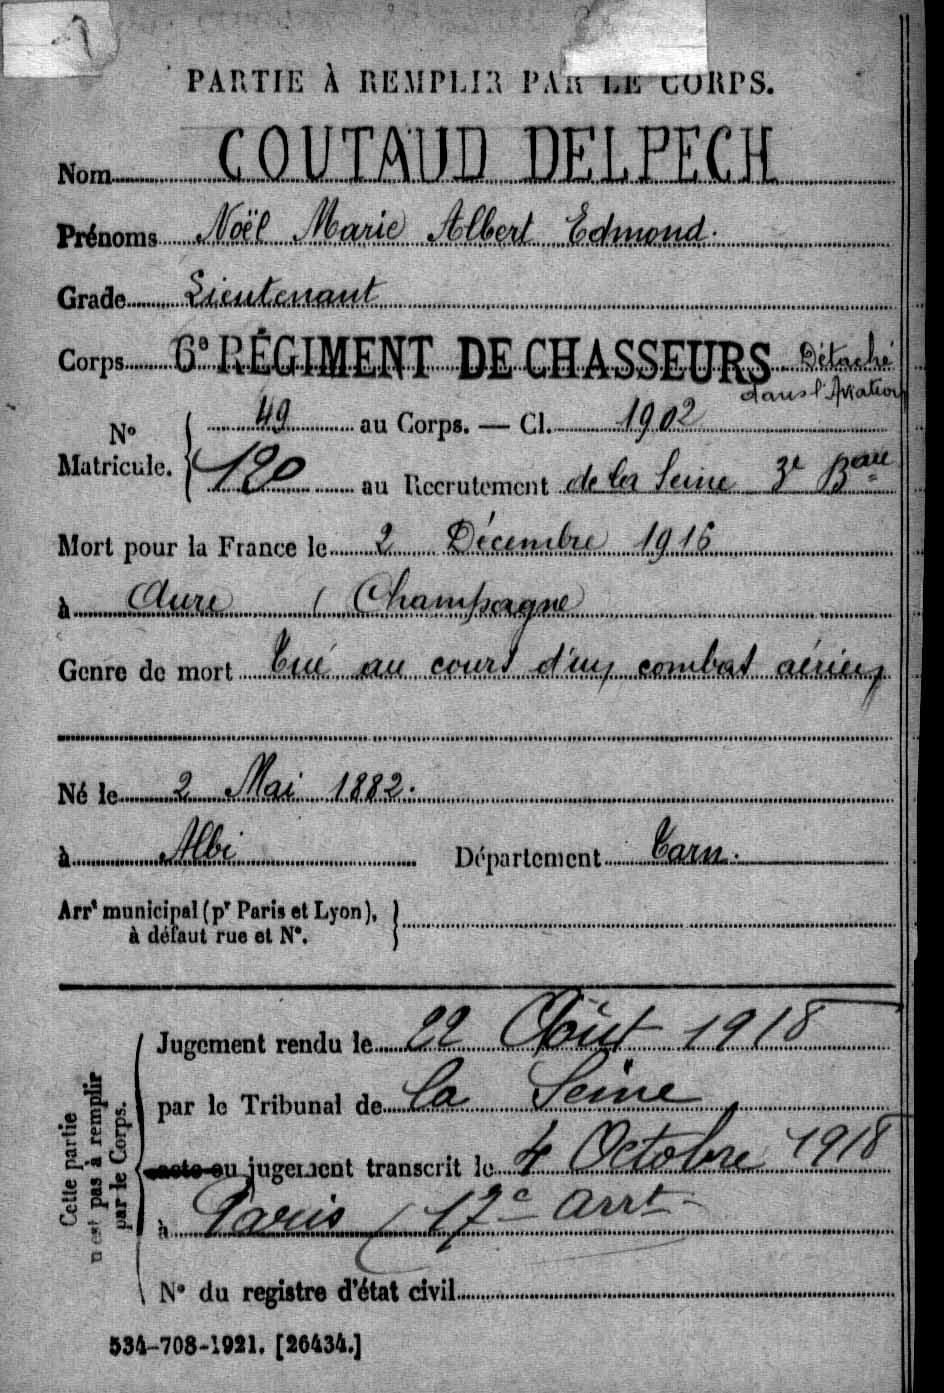 PARTIE À REMPLIR PAR LE CORPS.
Nom COUTAUD DELPECH
Prénoms Noël Marie Albert Edmond.
Grade Lieutenant
Corps 6e RÉGIMENT DE CHASSEURS Détaché
dans l'Aviation
N° Matricule. { 49 au Corps. — Cl. 1902
120 au Recrutement de la Seine 3e Bau
Mort pour la France le 2 Décembre 1916
à Aure ( Champagne
Genre de mort Tué au cours d'un combat aérien
Né le 2 Mai 1882.
à Albi Département Tarn.
Arrt municipal (pr Paris et Lyon), }
à défaut rue et N°.
Cette partie
n'est pas à remplir
par le Corps.
Jugement rendu le 22 Août 1918
par le Tribunal de la Seine
acte ou jugement transcrit le 4 Octobre 1918
à Paris (17e arrt
N° du registre d'état civil
534-708-1921. [26434.]